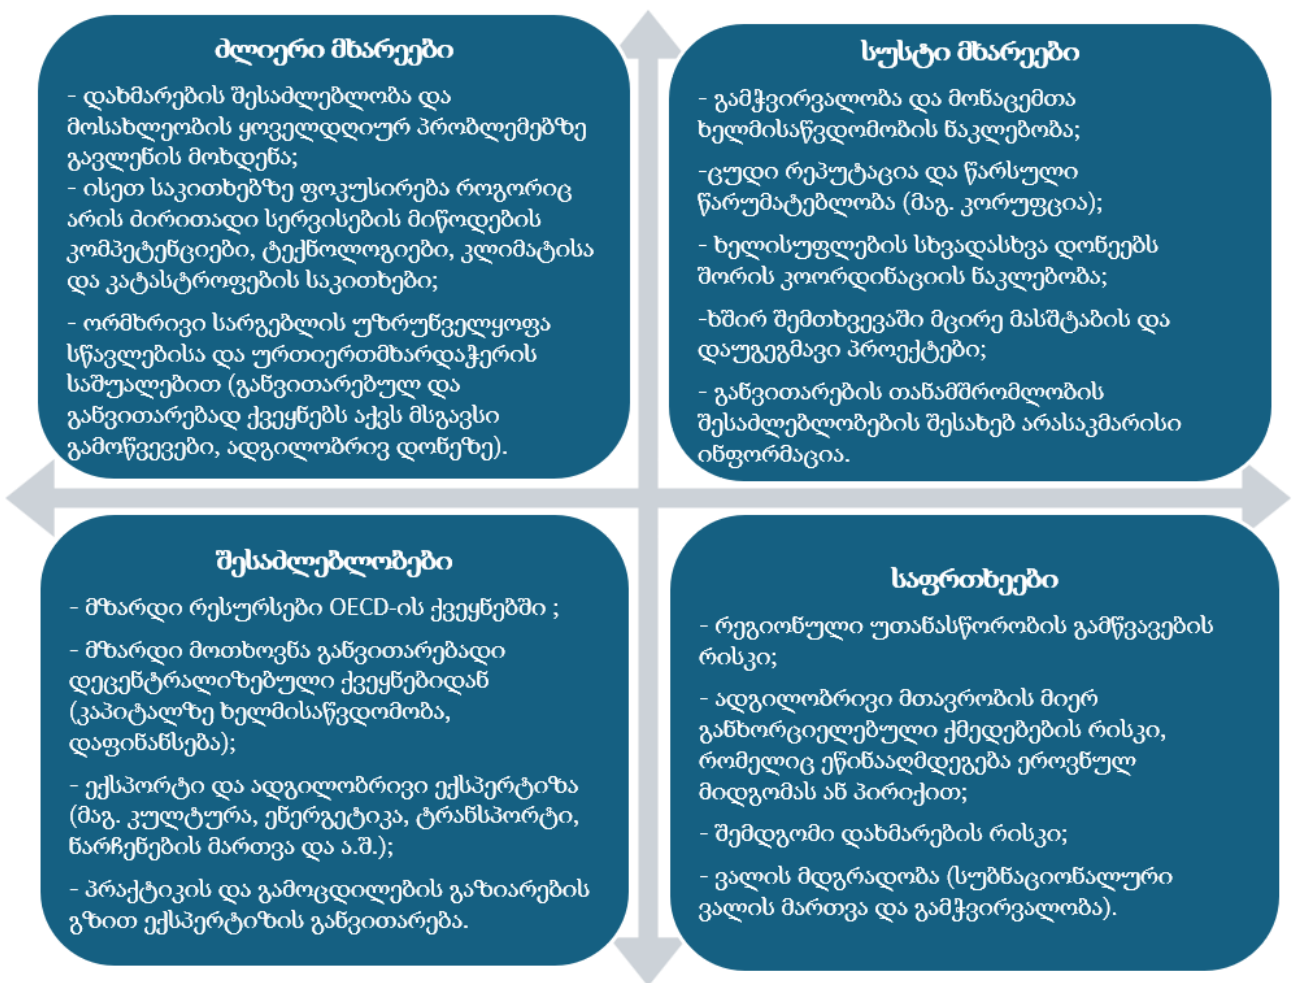 ძლიერი მხარეები
- დახმარების შესაძლებლობა და
მოსახლეობის ყოველდღიურ პრობლემებზე
გავლენის მოხდენა;
- ისეთ საკითხებზე ფოკუსირება როგორიც
არის ძირითადი სერვისების მიწოდების
კომპეტენციები, ტექნოლოგიები, კლიმატისა
და კატასტროფების საკითხები;
- ორმხრივი სარგებლის უზრუნველყოფა
სწავლებისა და ურთიერთმხარდაჭერის
საშუალებით (განვითარებულ და
განვითარებად ქვეყნებს აქვს მსგავსი
გამოწვევები, ადგილობრივ დონეზე).
სუსტი მხარეები
- გამჭვირვალობა და მონაცემთა
ხელმისაწვდომობის ნაკლებობა;
-ცუდი რეპუტაცია და წარსული
წარუმატებლობა (მაგ. კორუფცია);
- ხელისუფლების სხვადასხვა დონეებს
შორის კოორდინაციის ნაკლებობა;
-ხშირ შემთხვევაში მცირე მასშტაბის და
დაუგეგმავი პროექტები;
- განვითარების თანამშრომლობის
შესაძლებლობების შესახებ არასაკმარისი
ინფორმაცია.
შესაძლებლობები
- მზარდი რესურსები OECD-ის ქვეყნებში ;
- მზარდი მოთხოვნა განვითარებადი
დეცენტრალიზებული ქვეყნებიდან
(კაპიტალზე ხელმისაწვდომობა,
დაფინანსება);
- ექსპორტი და ადგილობრივი ექსპერტიზა
(მაგ. კულტურა, ენერგეტიკა, ტრანსპორტი,
ნარჩენების მართვა და ა.შ.);
- პრაქტიკის და გამოცდილების გაზიარების
გზით ექსპერტიზის განვითარება.
საფრთხეები
- რეგიონული უთანასწორობის გამწვავების
რისკი;
- ადგილობრივი მთავრობის მიერ
განხორციელებული ქმედებების რისკი,
რომელიც ეწინააღმდეგება ეროვნულ
მიდგომას ან პირიქით;
- შემდგომი დახმარების რისკი;
- ვალის მდგრადობა (სუბნაციონალური
ვალის მართვა და გამჭვირვალობა).